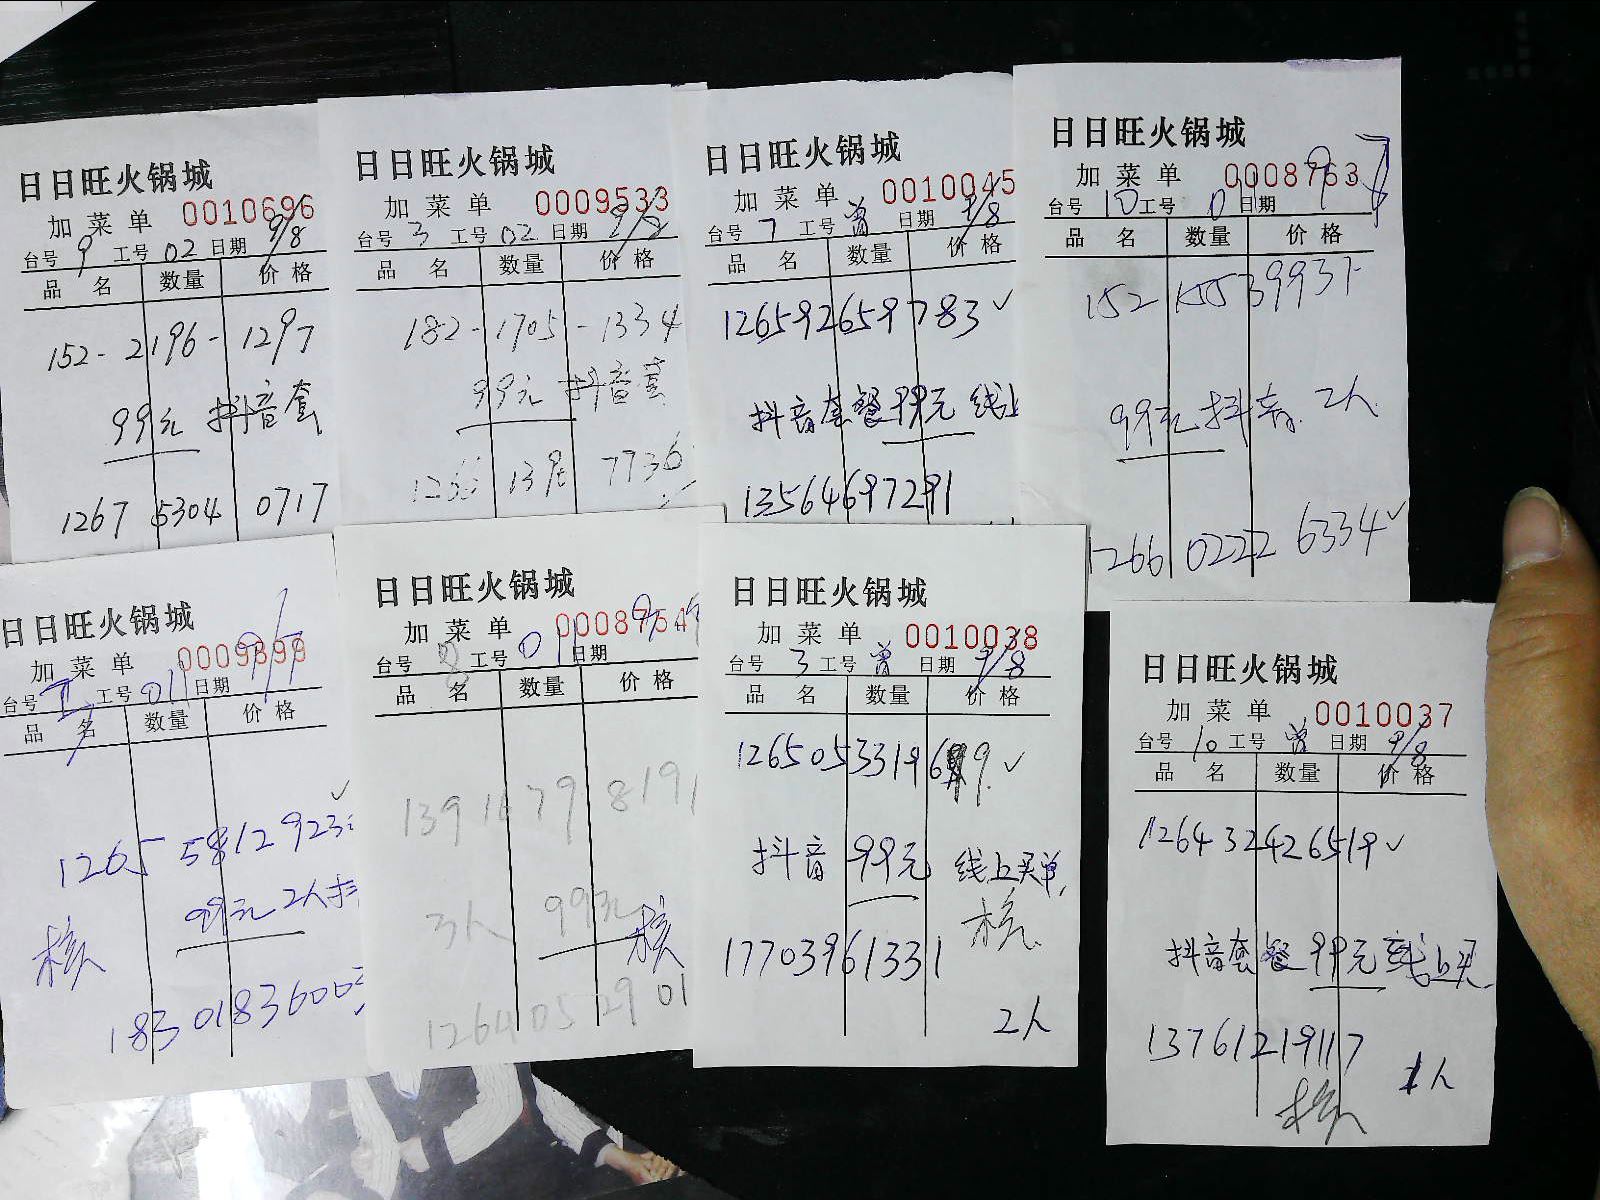 日日旺火锅城
加菜单 0010696
台号 9 工号 02 日期 9/8
品名 数量 价格
152-2196-1297
99元 抖音套
1267 5304 0717
日日旺火锅城
加菜单 0009533
台号 3 工号 02 日期 9/8
品名 数量 价格
182-1705-1334
99元 抖音套
7736
日日旺火锅城
加菜单 0010045
台号 7 工号 曾 日期 9/8
品名 数量 价格
126592659783 ✓
抖音套餐 99元 线上
13564697291
日日旺火锅城
加菜单 0008763
台号 10 工号 01 日期
品名 数量 价格
152 155
99元 抖音 2人
1266 0222 6334 ✓
日日旺火锅城
加菜单
台号 工号 01 日期 9/7
品名 数量 价格
✓
1265 5812923
99元 2人抖
核
日日旺火锅城
加菜单
台号 工号 01 日期
品名 数量 价格
139 1679 8191
3人 99元 核
1264 05 29 01
日日旺火锅城
加菜单 0010038
台号 3 工号 曾 日期 9/8
品名 数量 价格
抖音 99元 线上买单,
核
17703961331
2人
日日旺火锅城
加菜单 0010037
台号 10 工号 曾 日期 9/8
品名 数量 价格
126432426519 ✓
抖音套餐 99元 线上买
13761219117
1人
核